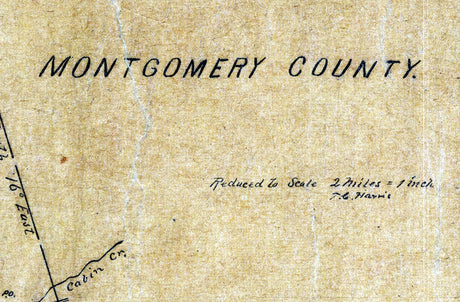 MONTGOMERY COUNTY.
Reduced to Scale 2 Miles = 1 inch
T.C. Harris
76° East
Cabin Cr.
P.O.